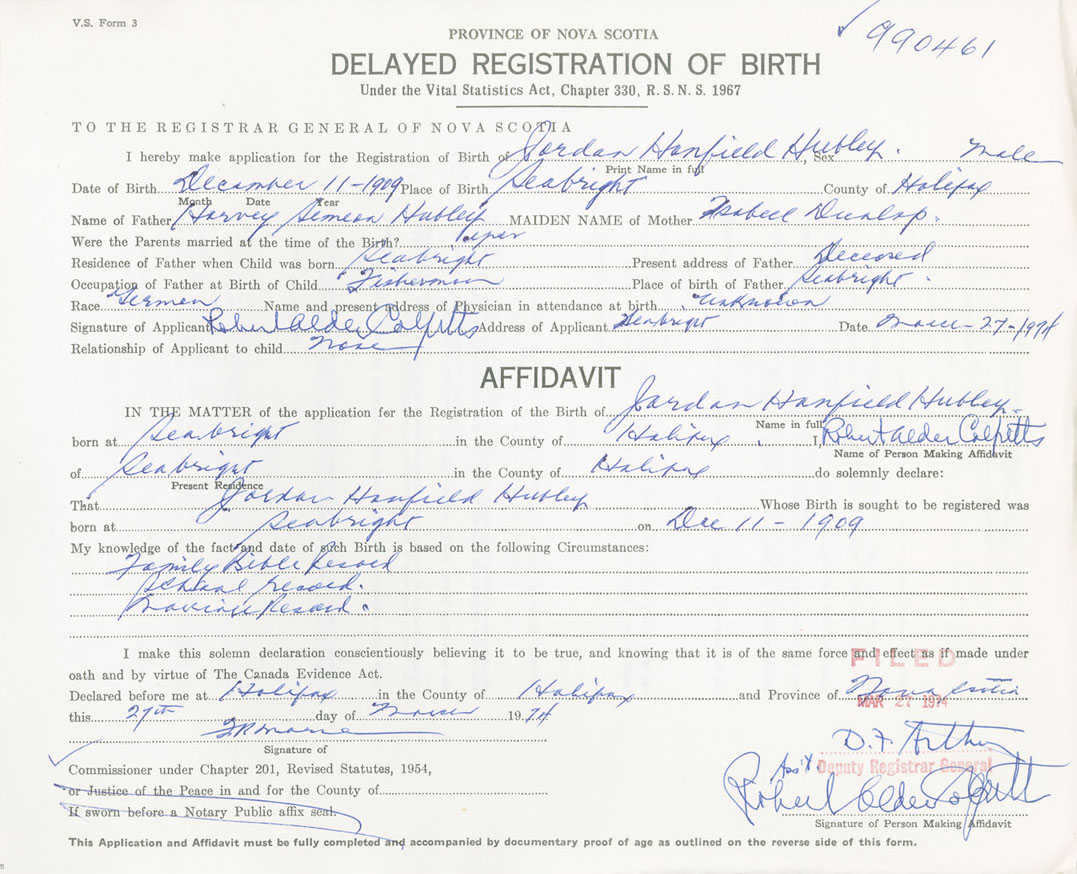 V.S. Form 3
990461
PROVINCE OF NOVA SCOTIA
DELAYED REGISTRATION OF BIRTH
Under the Vital Statistics Act, Chapter 330, R. S. N. S. 1967
TO THE REGISTRAR GENERAL OF NOVA SCOTIA
I hereby make application for the Registration of Birth of Jordan Hanfield Hubley. Sex Male
Print Name in full
Date of Birth December 11-1909 Place of Birth Seabright County of Halifax
Month Date Year
Name of Father Harvey Simeon Hubley MAIDEN NAME of Mother Isabell Dunlop.
Were the Parents married at the time of the Birth?
Residence of Father when Child was born Seabright Present address of Father Deceased
Occupation of Father at Birth of Child Fisherman Place of birth of Father Seabright.
Race German Name and present address of Physician in attendance at birth. Unknown
Signature of Applicant Robert Alder Colpitts Address of Applicant Seabright Date March-27-1974
Relationship of Applicant to child None
AFFIDAVIT
IN THE MATTER of the application for the Registration of the Birth of Jordan Hanfield Hubley-
Name in full
born at Seabright in the County of Halifax, I, Robert Alder Colpitts
Name of Person Making Affidavit
of Seabright in the County of Halifax do solemnly declare:
Present Residence
That Jordan Hanfield Hubley Whose Birth is sought to be registered was
born at Seabright on Dec 11-1909
My knowledge of the fact and date of such Birth is based on the following Circumstances:
Family Bible Record
School record.
Marriage Record.
I make this solemn declaration conscientiously believing it to be true, and knowing that it is of the same force and effect as if made under
FILED
oath and by virtue of The Canada Evidence Act.
Declared before me at Halifax in the County of Halifax and Province of Nova Scotia
MAR 27 1974
this 27th day of March 1974
Signature of
D.F. Arthur
Commissioner under Chapter 201, Revised Statutes, 1954,
Ass't Deputy Registrar General
or Justice of the Peace in and for the County of
Robert Alder Colpitts
If sworn before a Notary Public affix seal.
Signature of Person Making Affidavit
This Application and Affidavit must be fully completed and accompanied by documentary proof of age as outlined on the reverse side of this form.
5